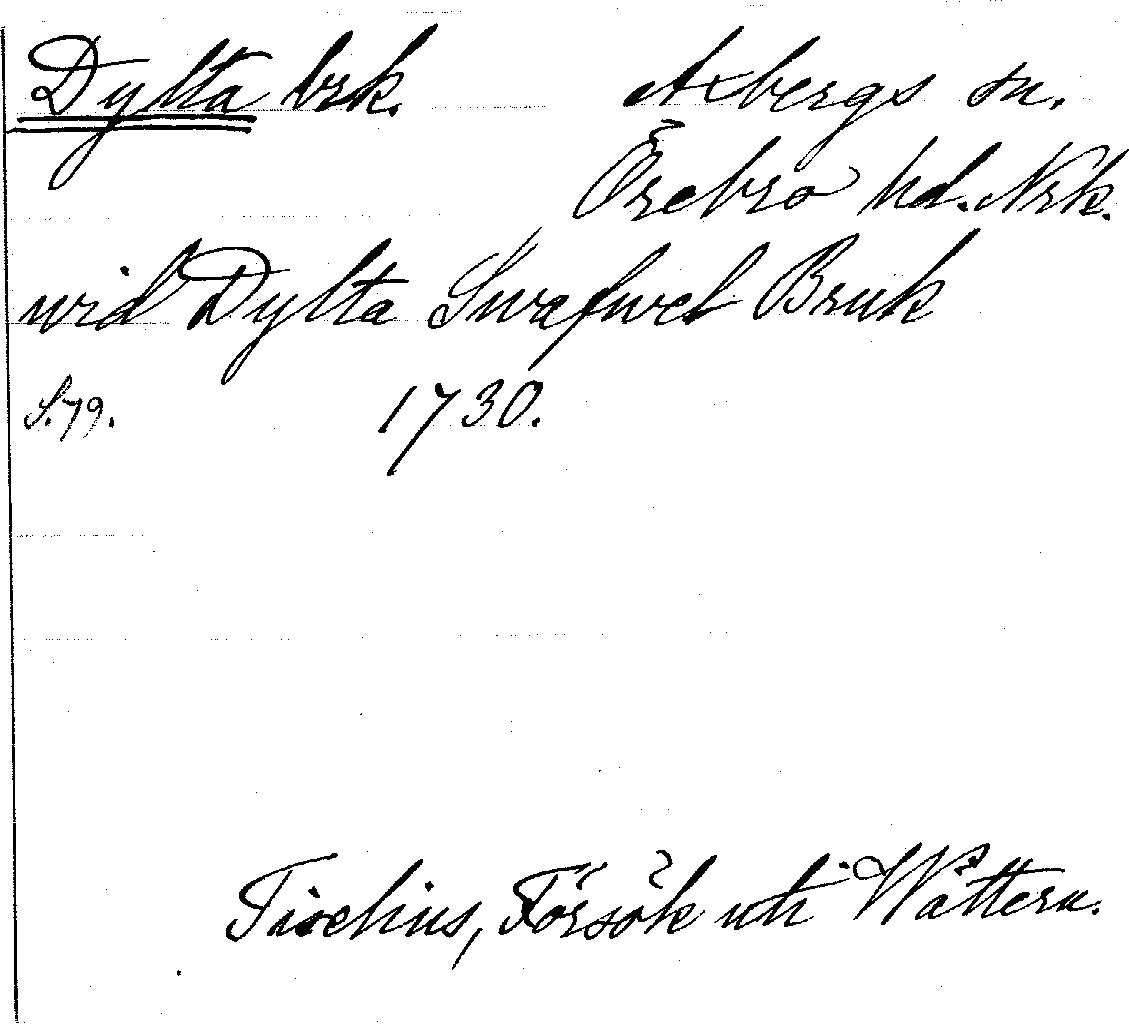 Dylta brk. Axbergs sn.
Örebro hd. Nrk.
wid Dylta Swafwel Bruk
S. 79. 1730.
Tiselius, Försök uti Wättern.